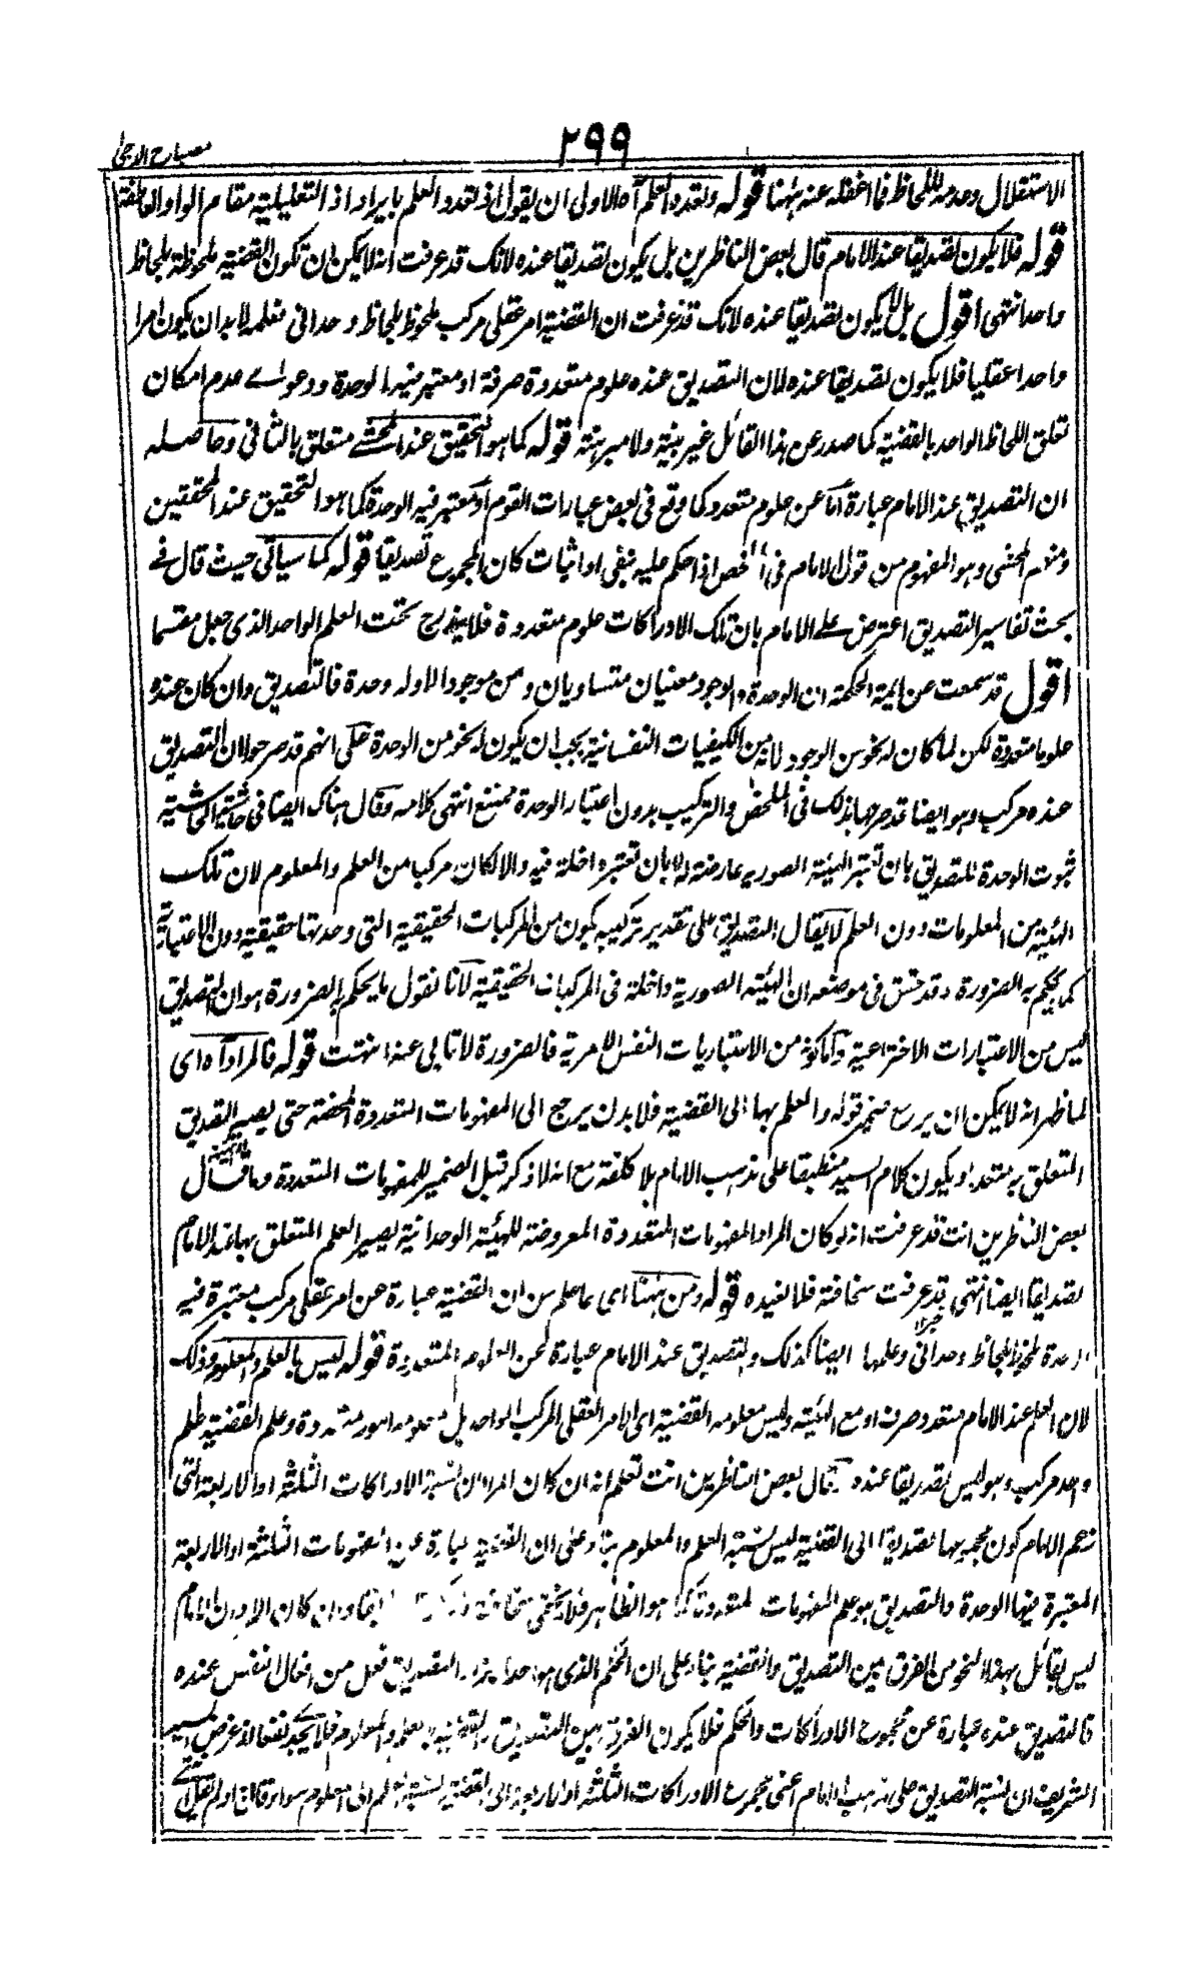 مصباح الدجى
٢٩٩
الاستقلال وعدمه للحاظ فما اغفله عنه ههنا قوله وتعدد العلم آه الاولى ان يقول اذ تعدد العلم بايراد اذ التعليلية مقام الواو العاطفة
قوله فلا يكون تصديقا عند الامام قال بعض الناظرين بل يكون تصديقا عنده لانك قد عرفت انه لا يمكن ان تكون القضية ملحوظة بلحاظ
واحد انتهى اقول بل لا يكون تصديقا عنده لانك قد عرفت ان القضية امر عقلي مركب ملحوظ بلحاظ وحداني فعلمه لا بد ان يكون امرا
واحدا عقليا فلا يكون تصديقا عنده لان التصديق عنده علوم متعددة صرفة او معتبر فيها الوحدة ودعوى عدم امكان
تعلق اللحاظ الواحد بالقضية كما صدر عن هذا القائل غير بينة ولا مبرهنة قوله كما هو التحقيق عند المحشي متعلق بالثاني وحاصله
ان التصديق عند الامام عبارة اما عن علوم متعدد كما وقع في بعض عبارات القوم او معتبر فيه الوحدة كما هو التحقيق عند المحققين
ومنهم المحشي وهو المفهوم من قول الامام في الملخص اذا حكم عليه بنفي او اثبات كان المجموع تصديقا قوله كما سياتي حيث قال في
بحث تفاسير التصديق اعترض على الامام بان تلك الادراكات علوم متعددة فلا يندرج تحت العلم الواحد الذي جعل مقسما
اقول قد سمعت عن ايمة الحكمة ان الوحدة والوجود معنيان متساويان ومن موجود الا وله وحدة فالتصديق وان كان عنده
علوما متعددة لكن لما كان له نحو من الوجود لانه من الكيفيات النفسانية يجب ان يكون له نحو من الوحدة على انهم قد صرحوا ان التصديق
عنده مركب وهو ايضا قد صرح بذلك في الملخص والتركيب بدون اعتبار الوحدة ممتنع انتهى كلامه وقال هناك ايضا في حاشية الحاشية
ثبوت الوحدة للتصديق بان تعتبر الهيئة الصورية عارضة له لا بان تعتبر داخلة فيه والا لكان مركبا من العلم والمعلوم لان تلك
الهيئة من المعلومات دون العلم لا يقال التصديق على تقدير تركيبه يكون من المركبات الحقيقية التي وحدتها حقيقية دون الاعتبارية
كما يحكم به الضرورة وقد حقق في موضعه ان الهيئة الصورية داخلة في المركبات الحقيقية لانا نقول ما يحكم به الضرورة هو ان التصديق
ليس من الاعتبارات الاختراعية واما كونه من الاعتباريات النفس الامرية فالضرورة لا تابى عنه انتهت قوله فالمراد آه اى
لما ظهر انه لا يمكن ان يرجع ضمير قوله والعلم بها الى القضية فلا بد ان يرجع الى المفهومات المتعددة المحضة حتى يصير التصديق
المتعلق به متعددا ويكون كلام السيد منطبقا على مذهب الامام بلا كلفة مع انه لا ذكر قبل الضمير للمفهومات المتعددة وما قال
بعض الناظرين انت قد عرفت انه لو كان المراد المفهومات المتعددة المعروضة للهيئة الوحدانية يصير العلم المتعلق بها عند الامام
تصديقا ايضا انتهى قد عرفت سخافته فلا نعيده قوله ومن ههنا اى مما علم من ان القضية عبارة عن امر عقلي مركب معتبرة فيه
الوحدة ملحوظ بلحاظ وحداني وعلمها ايضا كذلك والتصديق عند الامام عبارة عن العلوم المتعددة قوله ليس بالعلم والمعلوم وذلك
لان العلم عند الامام متعدد صرف او مع الهيئة وليس معلومه القضية اى الامر العقلي المركب الواحد بل معلومه امور متعددة وعلم القضية علم
واحد مركب وهو ليس تصديقا عنده قال بعض الناظرين انت تعلم انه ان كان المراد ان نسبة الادراكات الثلثة او الاربعة التي
زعم الامام كون مجموعها تصديقا الى القضية ليس نسبة العلم والمعلوم بناء على ان القضية عبارة عن المفهومات الثلثة او الاربعة
المعتبرة فيها الوحدة والتصديق هو علم المفهومات المتعددة كما هو الظاهر فلا يخفى سخافته وان كان المراد ان الامام
ليس بقائل بهذا النحو من الفرق بين التصديق والقضية بناء على ان الحكم الذي هو احد اجزاء التصديق فعل من افعال النفس عنده
فالتصديق عنده عبارة عن مجموع الادراكات والحكم فلا يكون الفرق بين التصديق والقضية بالعلم والمعلوم فلا يجد نفعا اذ غرض السيد
الشريف ان نسبة التصديق على مذهب الامام اعنى مجموع الادراكات الثلثة او الاربعة الى القضية نسبة العلم الى المعلوم سواء قال او لم يقل